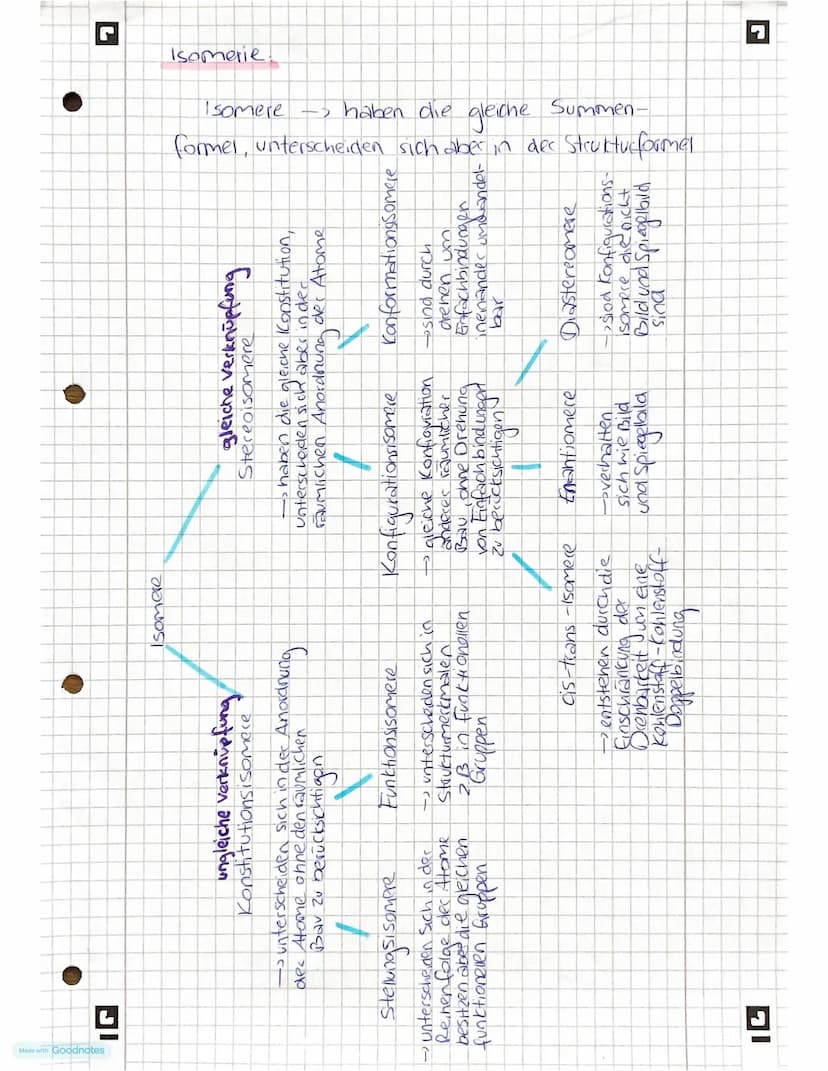 Isomerie:
Isomere -> haben die gleiche Summen-
formel, unterscheiden sich aber in der Strukturformel
Isomere
ungleiche Verknüpfung
Konstitutionsisomere
-> unterscheiden sich in der Anordnung
der Atome ohne den räumlichen
Bau zu berücksichtigen
gleiche Verknüpfung
Stereoisomere
-> haben die gleiche Konstitution,
unterscheiden sich aber in der
räumlichen Anordnung der Atome
Stellungsisomere
-> unterscheiden sich in der
Reihenfolge der Atome
besitzen aber die gleichen
funktionellen Gruppen
Funktionsisomere
-> unterscheiden sich in
Strukturmerkmalen
zB in funktionellen
Gruppen
Konfigurationsisomere
-> gleiche Konfiguration
anderer räumlicher
Bau, ohne Drehung
von Einfachbindungen
zu berücksichtigen
Konformationsisomere
-> sind durch
drehen um
Einfachbindungen
ineinander umwandel-
bar
cis-trans-Isomere
-> entstehen durch die
Einschränkung der
Drehbarkeit um eine
Kohlenstoff-Kohlenstoff-
Doppelbindung
Enantiomere
-> verhalten
sich wie Bild
und Spiegelbild
Diastereomere
-> sind Konfigurations-
isomere die nicht
Bild und Spiegelbild
sind
Made with Goodnotes